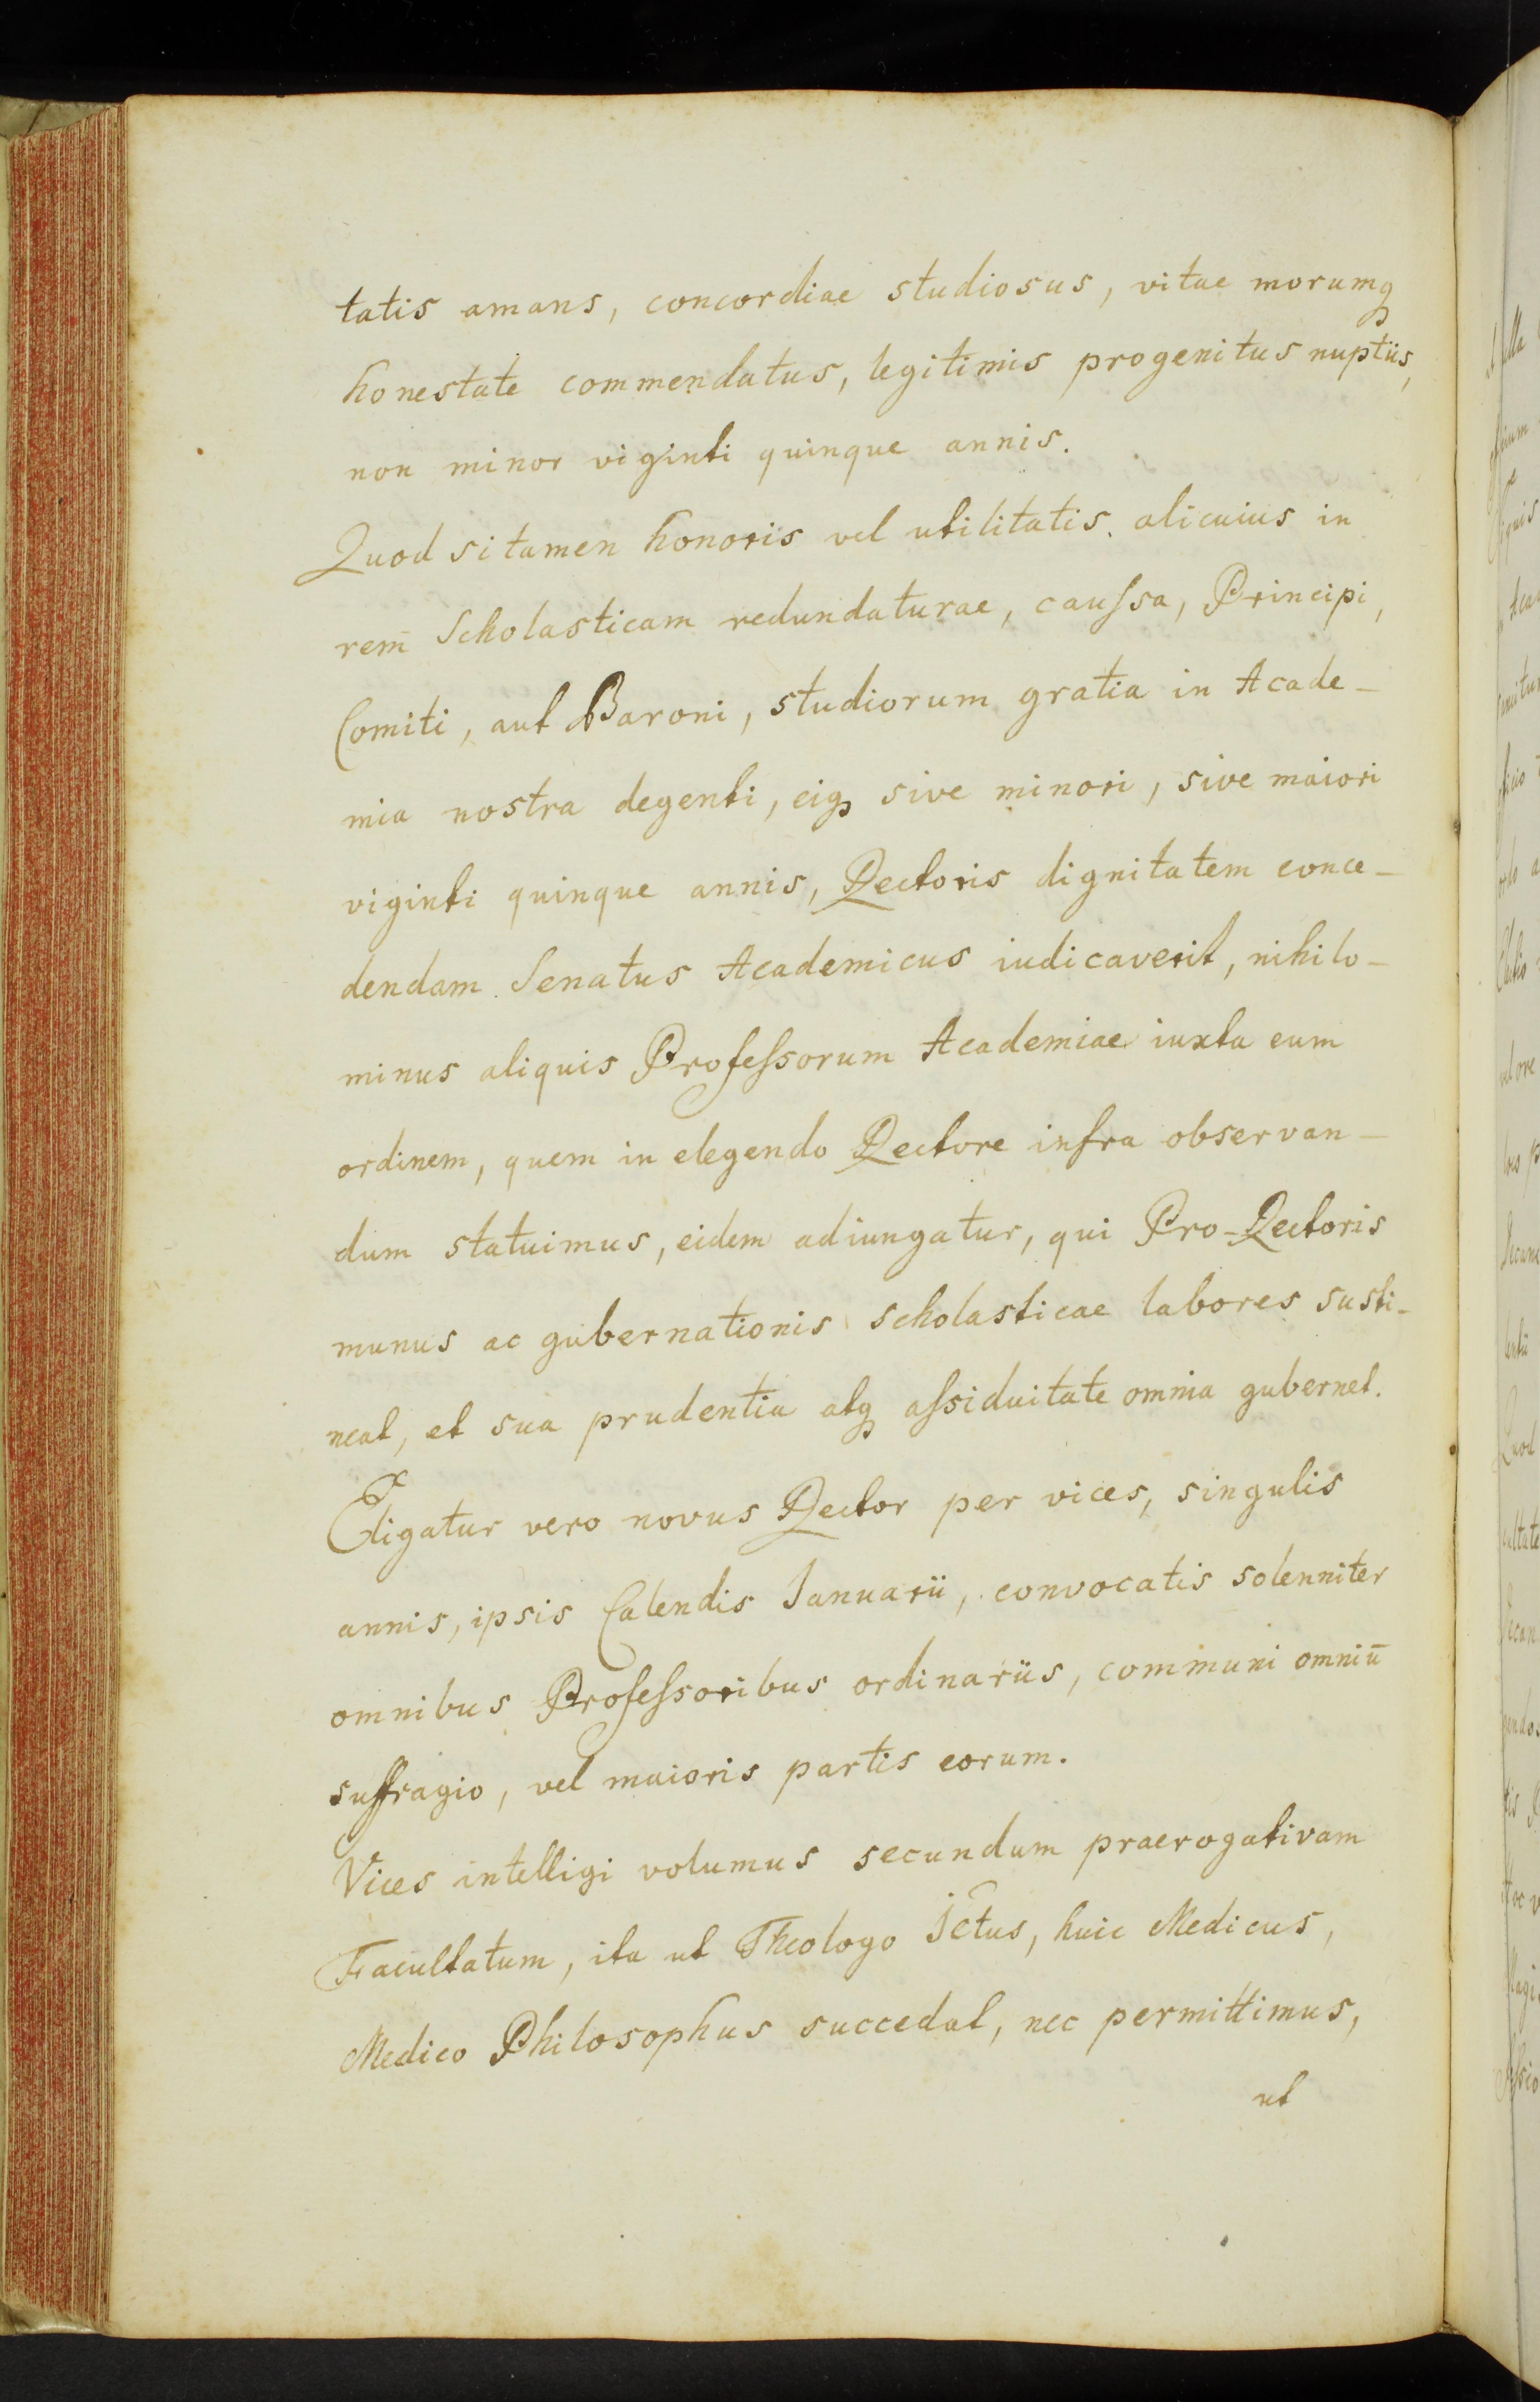 tatis amans, concordiae studiosus, vitae morumq
honestate commendatus, legitimis progenitus nuptiis,
non minor viginti quinque annis.
Quod si tamen honoris vel utilitatis alicuius in
rem Scholasticam redundaturae, caussa, Principi,
Comiti, aut Baroni, studiorum gratia in Acade-
mia nostra degenti, eiq sive minori, sive maiori
viginti quinque annis, Rectoris dignitatem conce-
dendam Senatus Academicus iudicaverit, nihilo-
minus aliquis Professorum Academiae iuxta eum
ordinem, quem in elegendo Rectore infra observan-
dum statuimus, eidem adiungatur, qui Pro-Rectoris
munus ac gubernationis scholasticae labores susti-
neat, et sua prudentia atq assiduitate omnia gubernet.
Eligatur vero novus Rector per vices, singulis
annis, ipsis Calendis Ianuarii, convocatis solenniter
omnibus Professoribus ordinariis, communi omniū
suffragio, vel maioris partis eorum.
Vices intelligi volumus secundum praerogativam
Facultatum, ita ut Theologo Ictus, huic Medicus,
Medico Philosophus succedat, nec permittimus,
ut